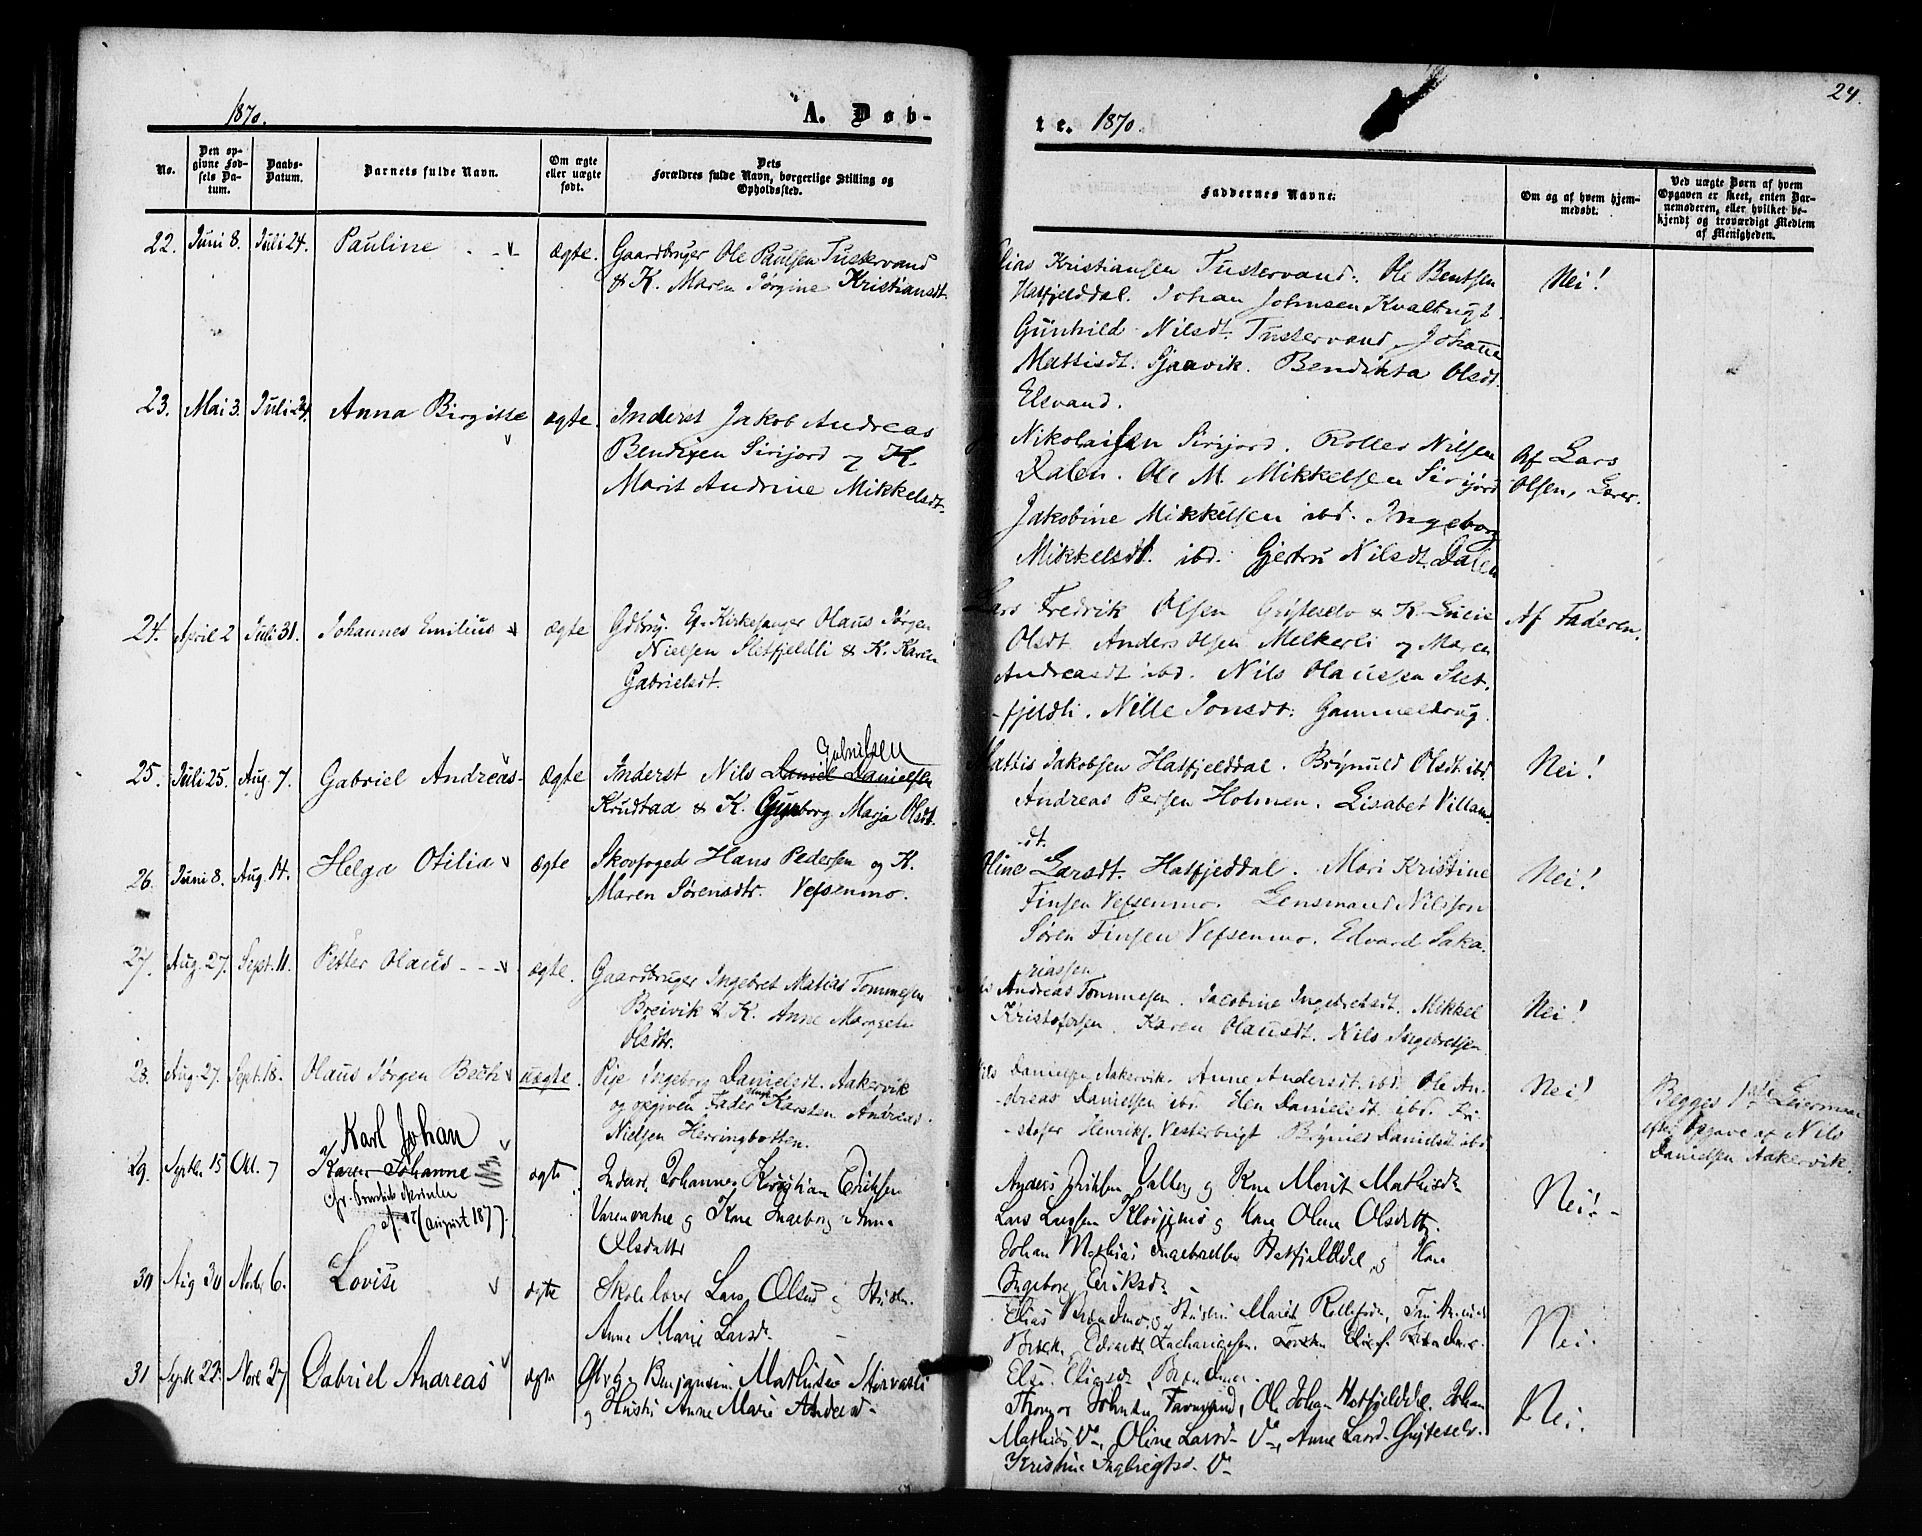 1870.
A. Døb-
No.
Den op-
givne Fød-
sels Da-
tum.
Daabs-
Datum.
Barnets fulde Navn.
Om ægte
eller uægte
født.
Dets
Forældres fulde Navn, borgerlige Stilling og
Opholdssted.
22. Juni 8. Juli 24. Pauline ægte.
Gaardbruger Ole Paulsen Tustervand
& K. Maren Jørgine Kristiansdt.
23. Mai 3. Juli 24. Anna Birgitte ægte.
Inderst Jakob Andreas
Bendixen Sirijord og K.
Marit Andrine Mikkelsdt.
24. April 2 Juli 31. Johannes Emilius ægte
Gdbrg. Kirkesanger Olaus Jørgen
Nielsen Sletfjeldli & K. Karen
Gabrielsdt.
25. Juli 25. Aug. 7. Gabriel Andreas ægte
Gabrielsen
Inderst Nils Daniel Danielsen
Krudtaa & K. Marja Olsdt.
26. Juni 8. Aug. 14. Helga Otilia ægte
Skovfoged Hans Pedersen og K.
Maren Sørensdtr. Vefsenmo.
27. Aug. 27. Sept. 11. Petter Olaus ægte.
Gaardbruger Ingebret Matias Tommesen
Breivik & K. Anne Margrete
Olsdtr.
28. Aug. 27. Sept. 18. Olaus Jørgen Bech uægte.
Pige Ingeborg Danielsdt. Aakervik
og opgiven Fader Ungk. Karsten Andreas
Nielsen Herringbotten.
Karl Johan
29. Septb. 15 Okt. 7 Karen Johanne ægte
af 17 august 1877.
Inderst Johannes Kristian Eriksen
og Kone Ingeborg Anne
Olsdatter
30 Aug 30 Novb. 6. Lovise ægte
Skolelærer Lars Olsen og Hustru
Anne Marie Larsd.
31 Septb 22. Novb. 27 Gabriel Andreas ægte
Benjamin Mathisen Storvatli
og Hustru Anne Marie Andersd.
te. 1870.
24.
Faddernes Navne.
Om og af hvem hjem-
medøbt.
Ved uægte Børn af hvem
Opgaven er skeet, enten Bar-
nemoderen, eller hvilket be-
kjendt og troværdigt Medlem
af Menigheden.
Elias Kristiansen Tustervand. Ole Bentsen
Hatfjelddal. Johan Johnsen Kvaltugt.
Gunhild Nilsdt. Tustervand. Johanna
Mattisdt. Sjaavik. Bendikta Olsdt.
Elsvand.
Nei!
Nikolaisen Sirijord. Roller Nilsen
Dalen. Ole M. Mikkelsen Sirijord
Jakobine Mikkelsen ibd. Ingeborg
Mikkelsdt. ibd. Gjertru Nilsdt. Dalen
Af Lars
Olsen, Lærer.
Lars Fredrik Olsen Gryteselv & K. Lucie
Olsdt. Anders Olsen Melkerli og Maren
Andreasdt ibd. Nils Olaussen Slet-
-fjeldli. Nille Jonsdt. Gammeldrug.
Af Faderen.
Mattis Jakobsen Hatfjelddal. Brynuld Olsdt. ibd
Andreas Persen Holmen. Lisabet Villum-
dt.
Nei!
Oline Larsdt. Hatfjeddal. Mari Kristine
Finsen Vefsenmo. Lensmand Nilsson
Søren Finsen Vefsenmo. Edvard Saka-
riassen
Nei!
Andreas Tommesen. Jacobine Ingebretsdt. Mikkel
Kristofersen. Karen Olausdt. Nils Ingebretsen.
Nei!
Nils Danielsen Aakervik. Anne Andersdt. ibd. Ole An-
dreas Danielsen ibd. Elen Danielsdt. ibd. Kri-
-stofer Henriks. Vesterbugt Danielsdt ibd
Nei!
Begges 1ste Leiermaal
efter Opgave af Nils
Danielsen Aakervik.
Anders Eriksen Valberg og Kone Marit Mathisd.
Lars Larsen og Kone Oline Olsdatter.
Johan Mathias Ingebretsen Hatfjelddal og Kone
Ingeborg Eriksd.
Nei!
Elias og Hustru Marit
Zachariassen.
Elen Eliasd.
Nei.
Thomas Johnsen Ole Johan Hatfjelddal. Johan
Mathias Do, Oline Larsd. Do, Anne Larsd. Gryteselv.
Kristine Ingbrigtsd. Do
Nei.